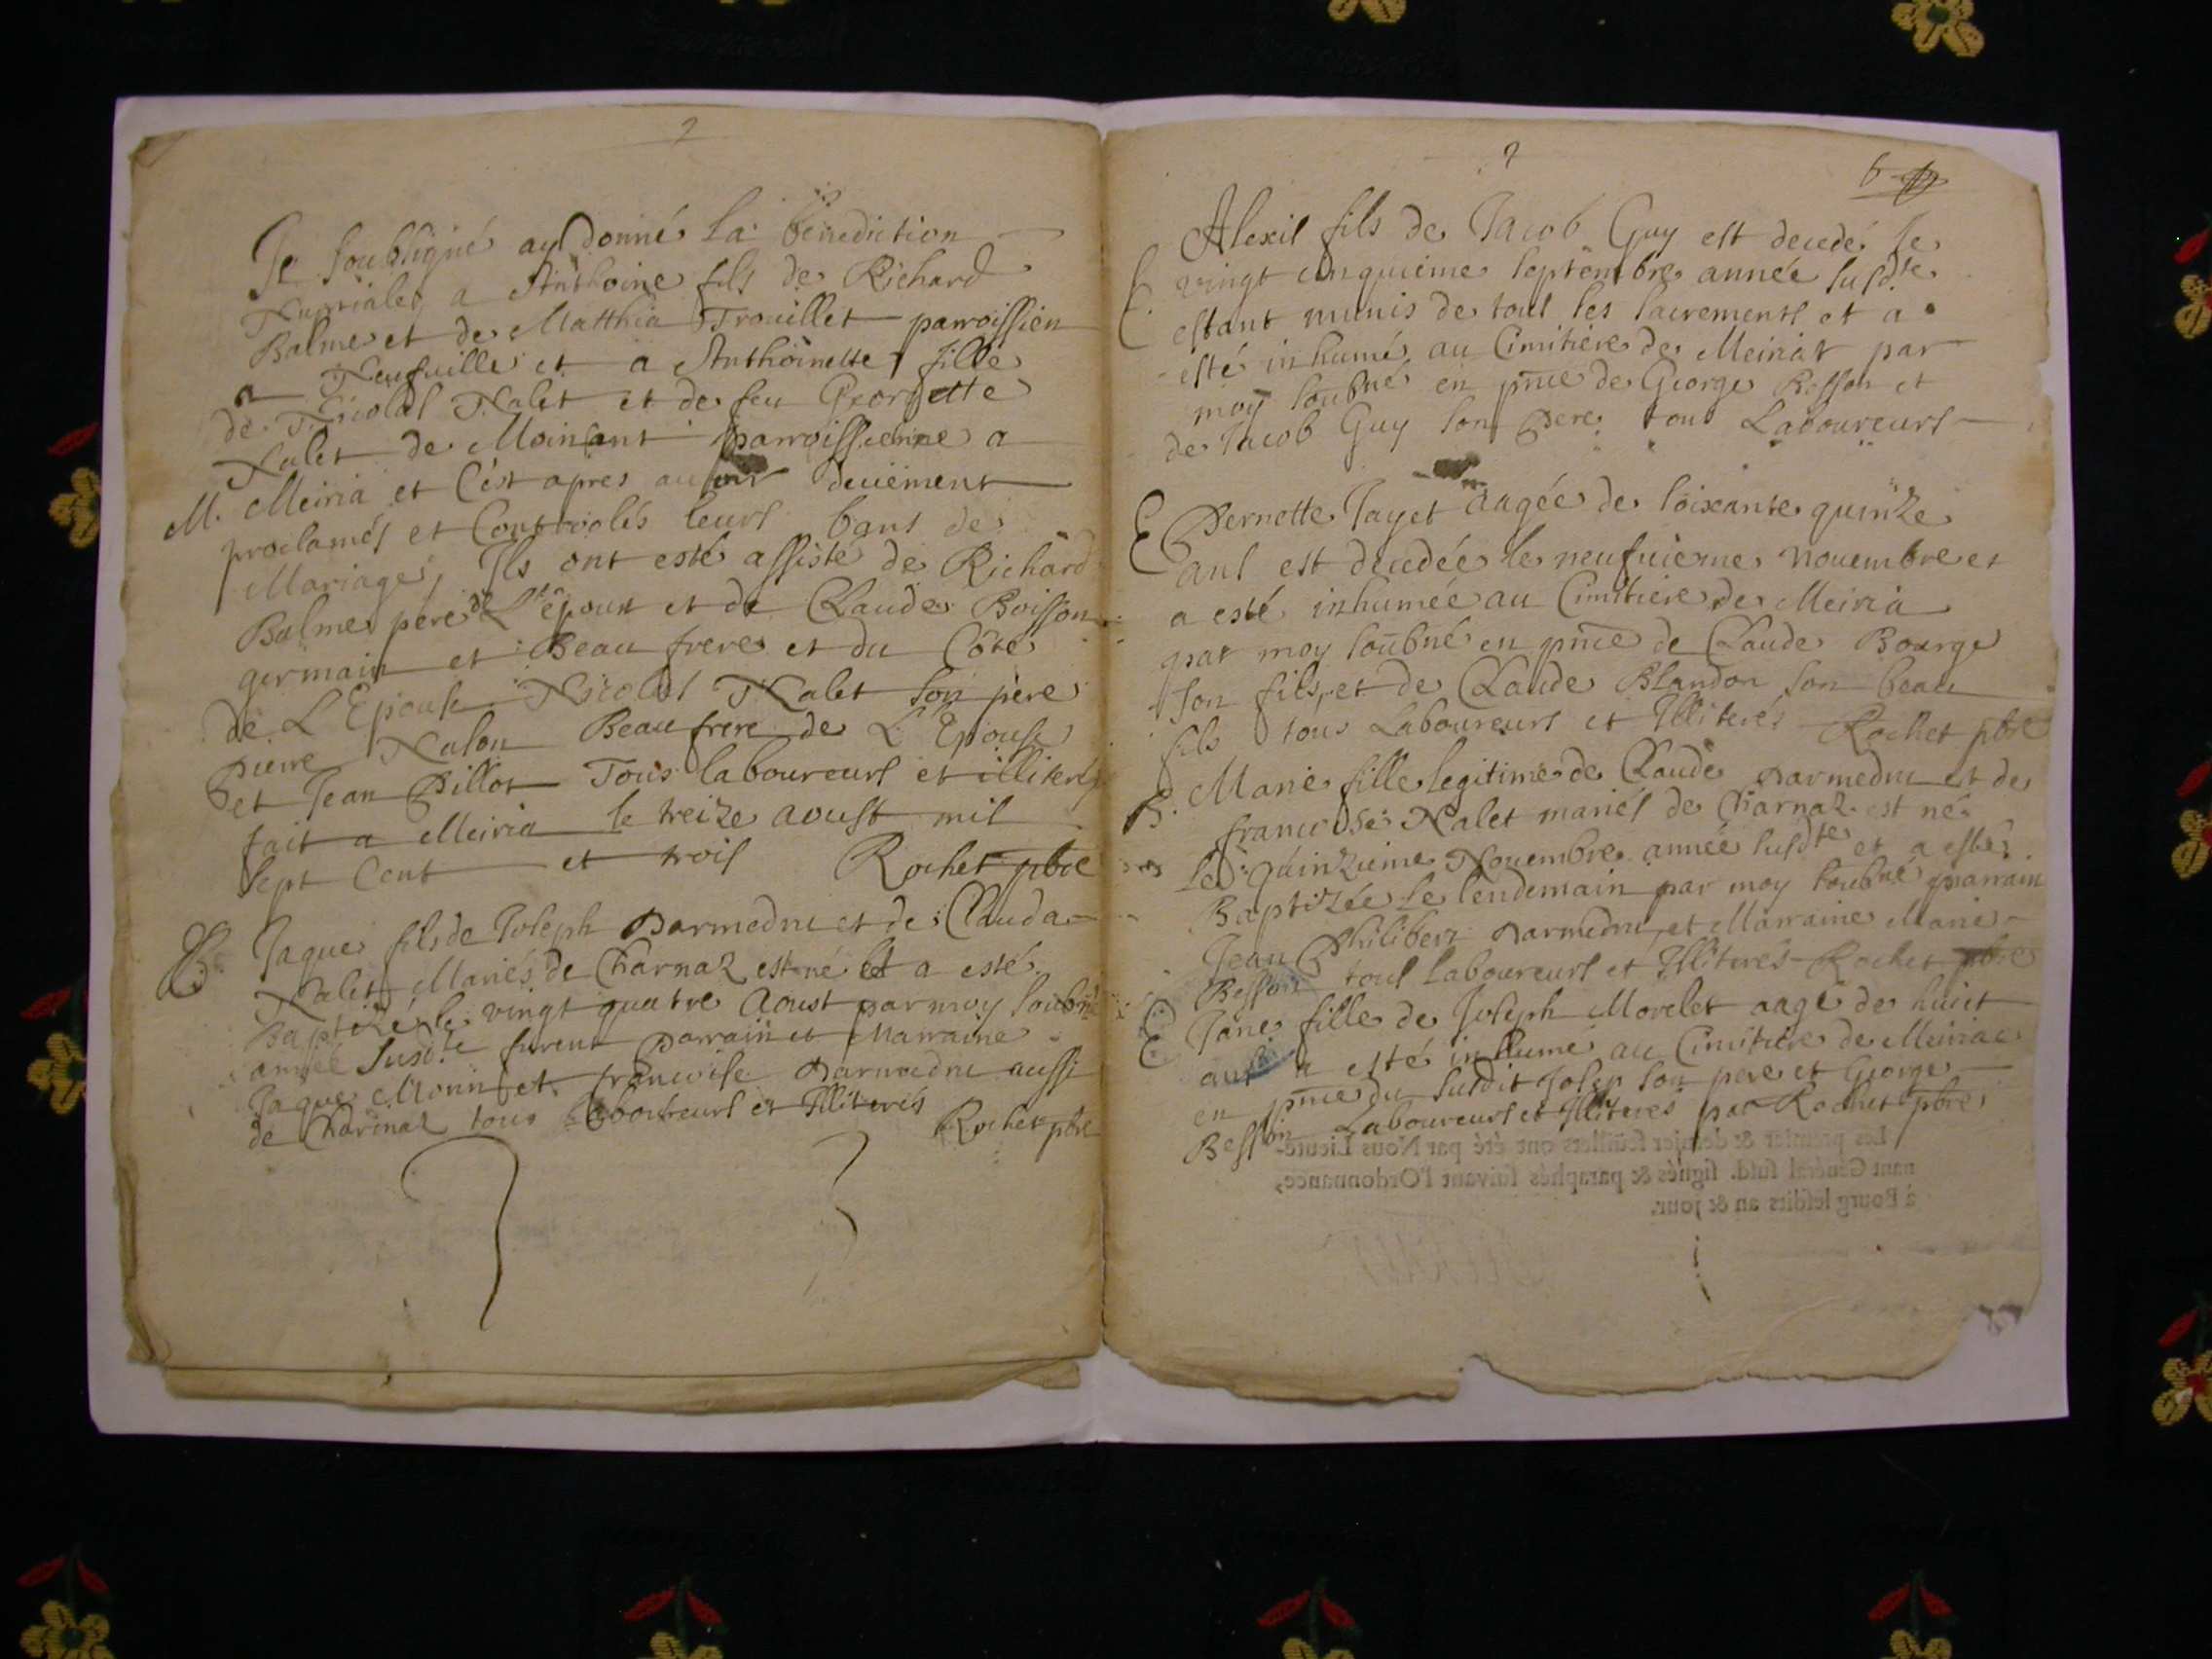 Je soubsigné ay donné la bénediction
Nuptiale a Anthoine fils de Richard
Balme et de Matthia Trouillet parroissien
a Neufuille et a Anthoinette fille
de Nicolas Nalet et de feu Georgette
Nalet de Moinans parroissienne a
M. Meiria et C'est apres auoir deüement
proclamés et Controolés leurs bans de
Mariage, Ils ont esté assisté de Richard
Balme pere de L'Epoux et de Claude Boisson
germain et Beau frere et du Côté
de L'Epouse Nicolas Nalet son pere
pierre Nalon Beau frere de L'Epouse
et Jean Pillot Tous laboureurs et illiterés
fait a Meiria le treize aoust mil
sept Cent et trois Rochet pbre
B. Jaque fils de Joseph Darmedru et de Clauda
Nalet Mariés de Charnaz est né et a esté
Baptizé le vingt quatre Aoust par moy soubné
année susdte furent parrain et Marraine
Jaque Morin et francoise Darmedru aussi
de Charinaz tous Laboureurs et Illiterés
Rochet pbre
2
6
Alexis fils de Jacob Guy est decedé le
E. vingt cinquieme septembre année susdte
estant munis de tous les sacrements et a
esté inhumé au Cimitiere de Meiriat par
moy soubné en pnce de George Besson et
de Jacob Guy son Pere tous Laboureurs
E Pernette Jayet aagée de soixante quinze
ans est decedée le neufuieme Nouembre et
a esté inhumée au Cimitiere de Meiria
par moy soubné en pnce de Claude Bourge
son fils, et de Claude Blandon son beau
fils tous Laboureurs et Illiterés Rochet pbre
B. Marie fille legitime de Claude Darmedru et de
francoise Nalet mariés de Charnaz est né
le quinzieme Nouembre année susdte et a esté
Baptizée le lendemain par moy soubné parrain
Jean Philibert Darmedru, et Marraine Marie
Besson tous laboureurs et Illiterés Rochet pbre
E Jane fille de Joseph Morelet aagé de huict
ans a esté inhumé au Cimitiere de Meiriac
en pnce du susdit Josep son pere et George
Besson Laboureurs et Illiterés par Rochet pbre
Les premier & dernier feüillets ont été par Nous Lieute-
nant Général susd. signés & paraphés suivant l'Ordonnance,
à Bourg lesdits an & jour.